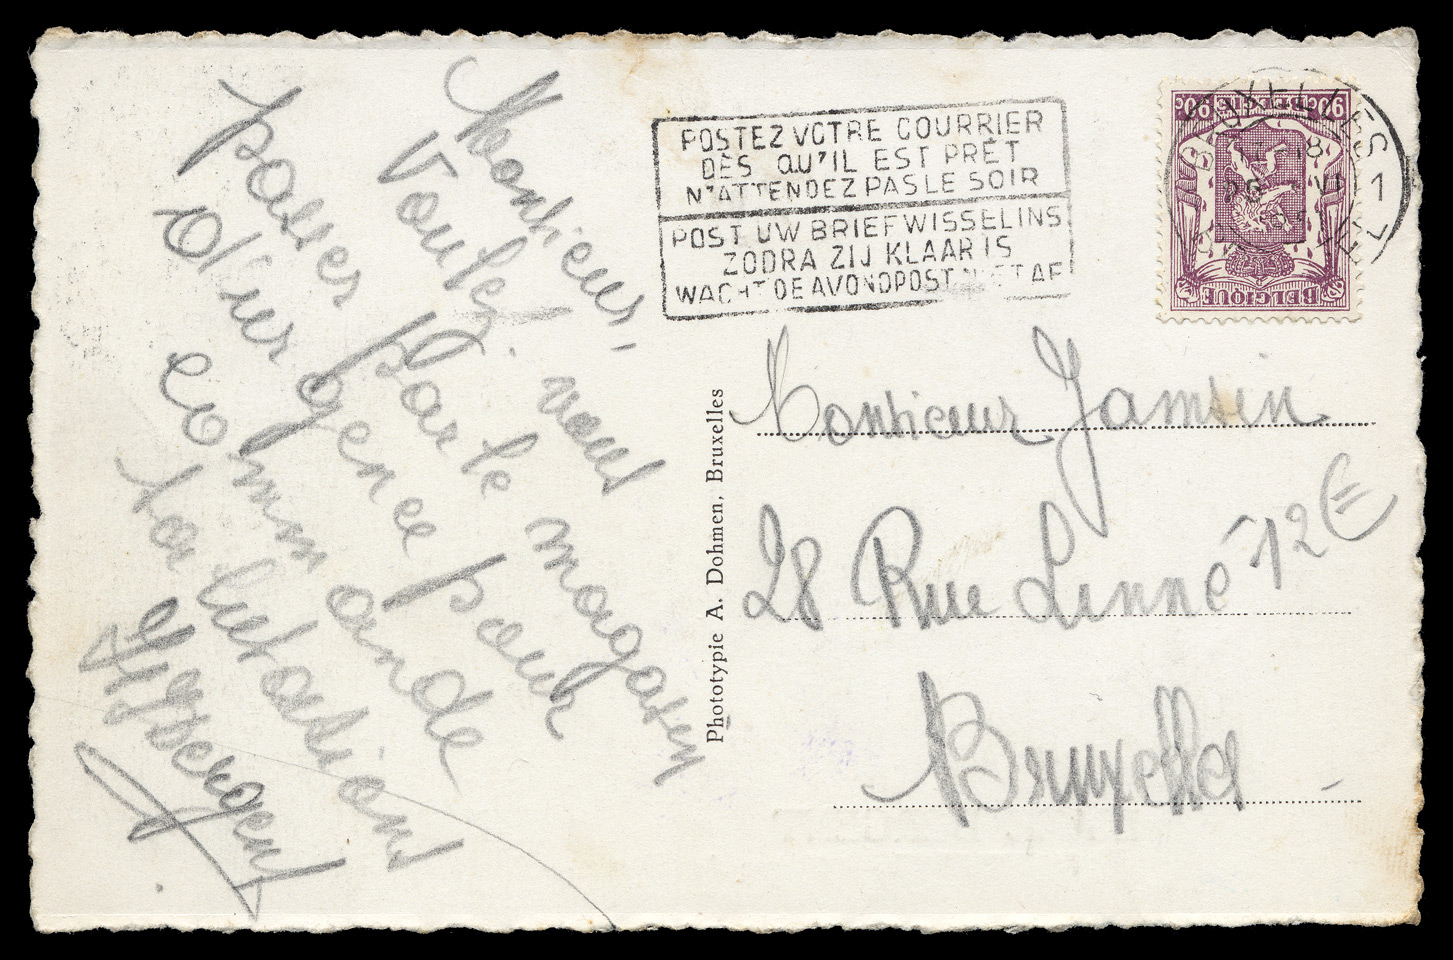 Monsieur,
Voulez vous
passer par le magasin
d'urgence pour
commande
Salutations
POSTEZ VOTRE COURRIER
DÈS QU'IL EST PRÊT
N'ATTENDEZ PAS LE SOIR
POST UW BRIEFWISSELING
ZODRA ZIJ KLAAR IS
WACHT DE AVONDPOST NIET AF
BRUXELLES 1
90c 90c
BELGIQUE
Phototypie A. Dohmen, Bruxelles
Monsieur Jamsin
28 Rue Linné
12€
Bruxelles